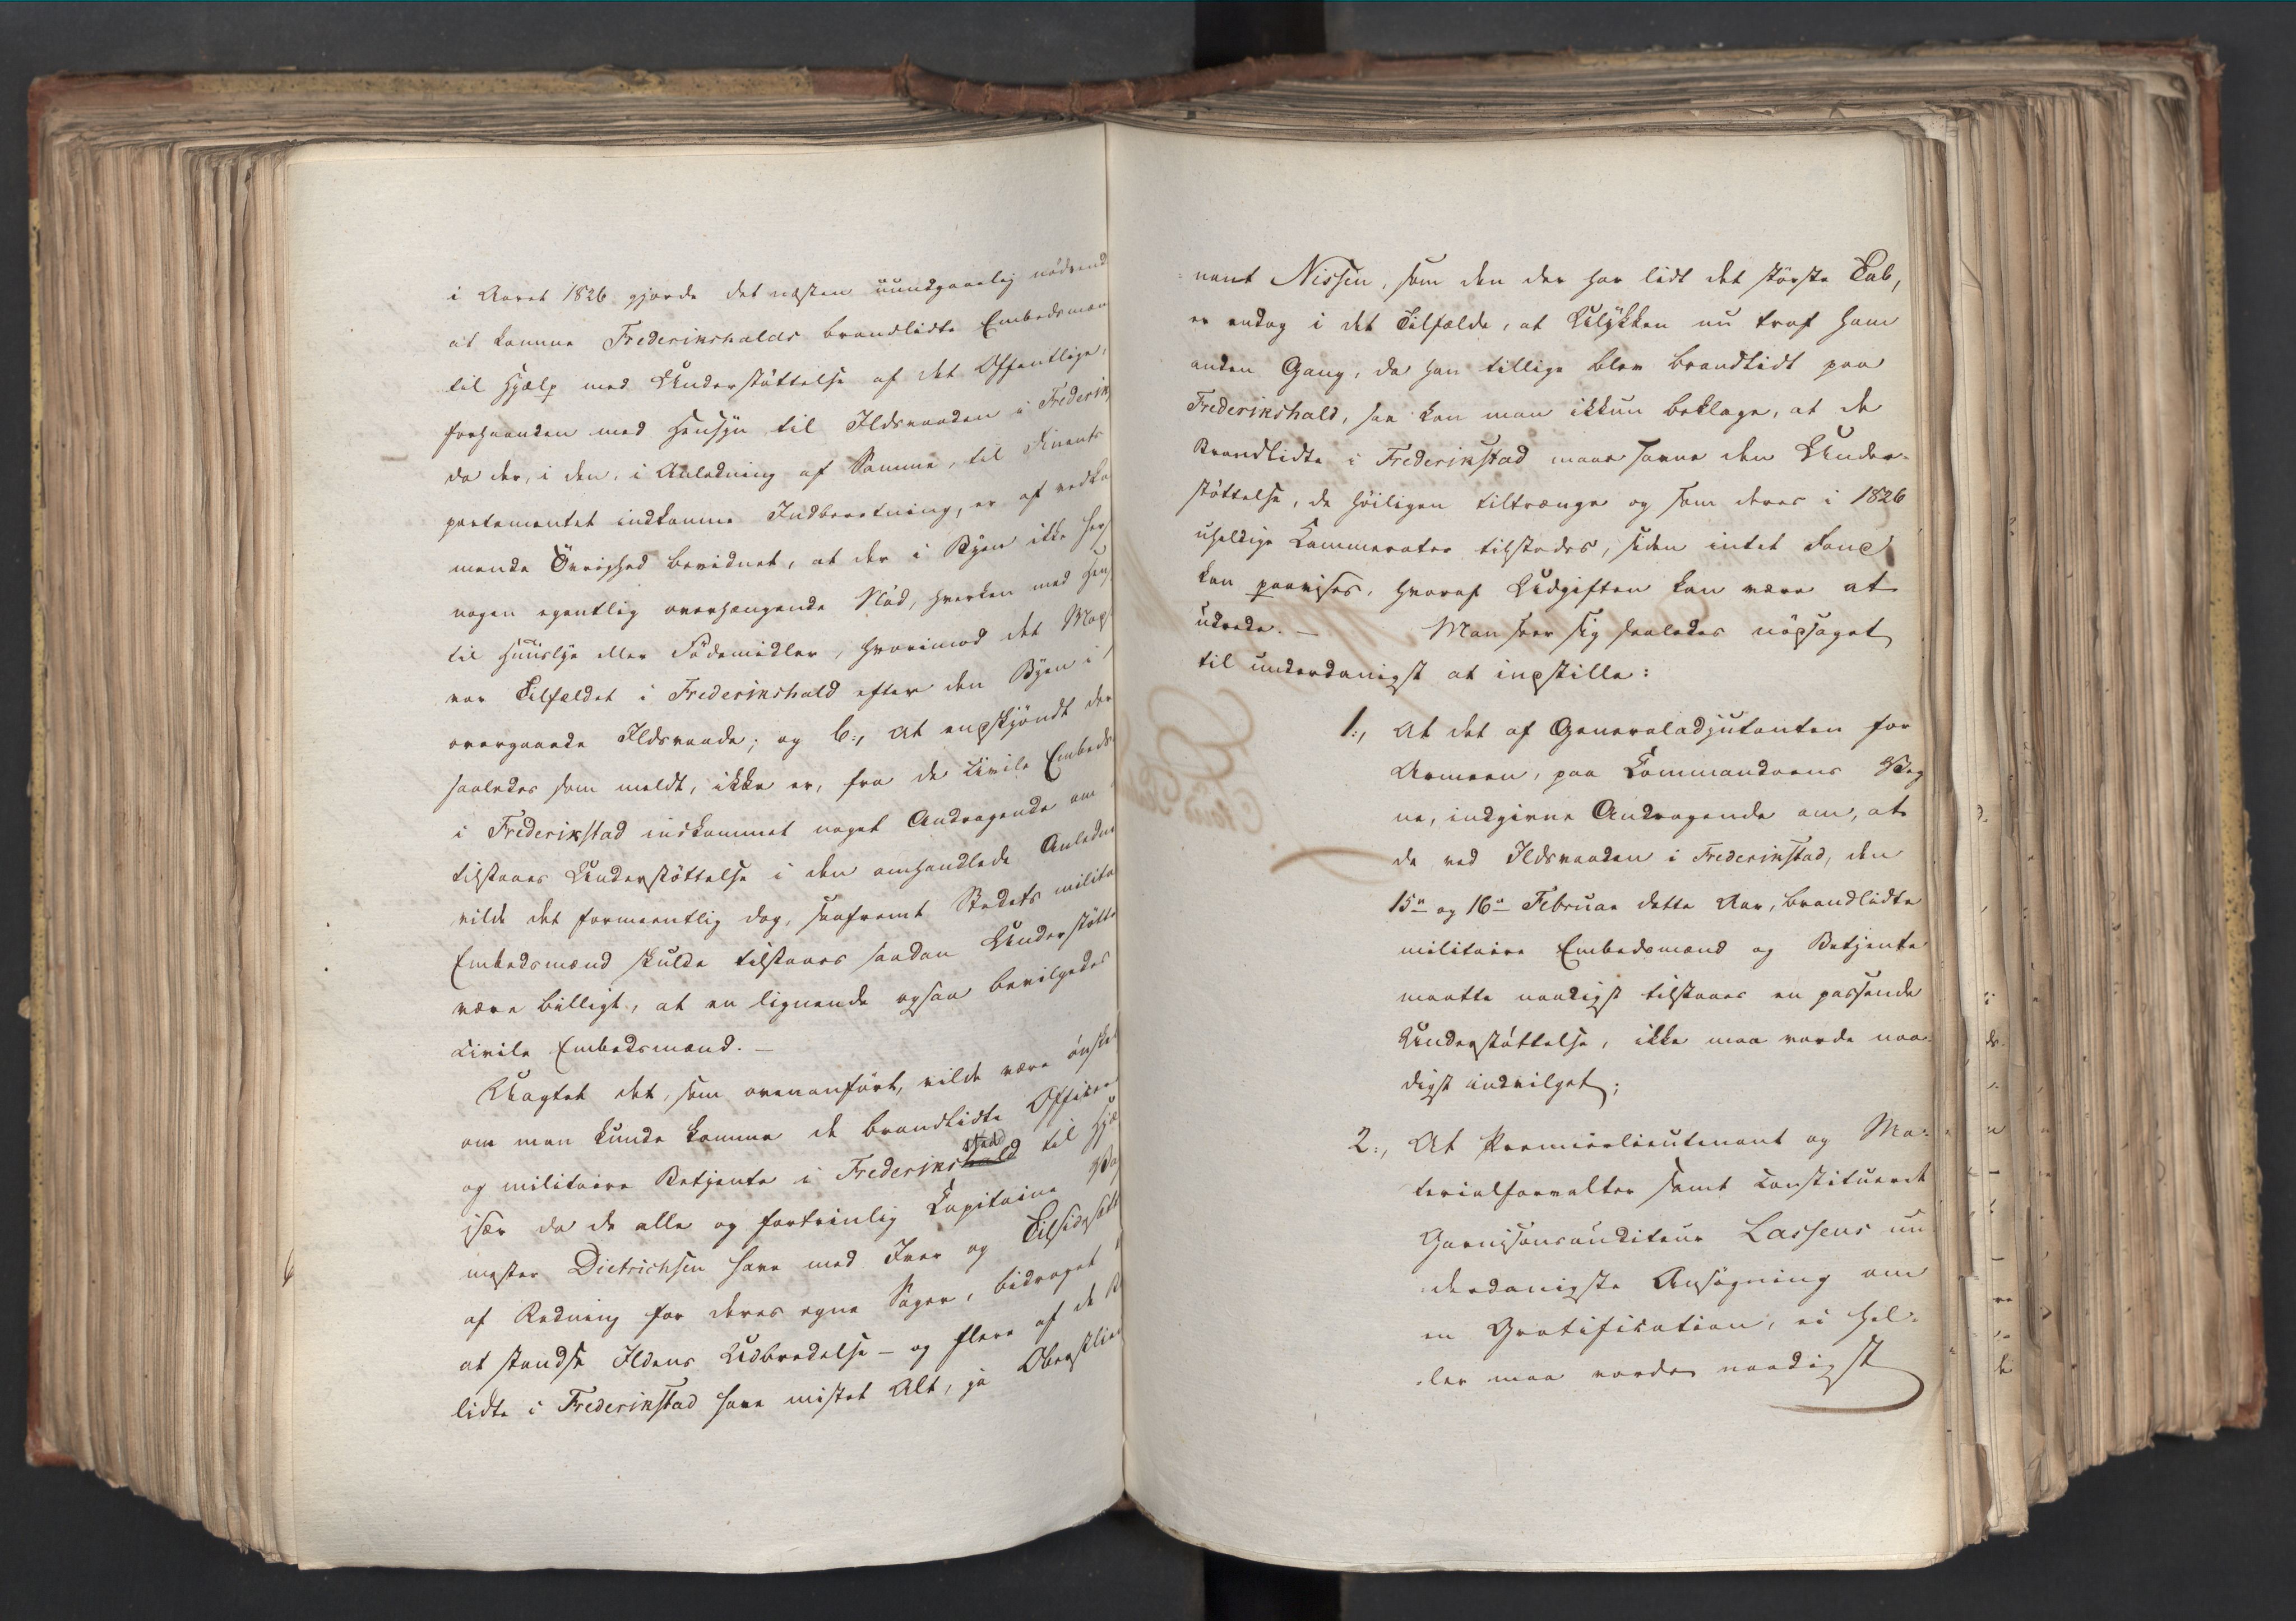 i Aaret 1826 gjorde det næsten uundgaaelig nødvend
at komme Frederikshalds brandlidte Embedsmæn
til Hjælp med Understøttelse af det Offentlige,
forhaanden med Hensyn til Ildsvaaden i Frederik
da der, i den, i Anledning af Samme, til Finants
partementet indkomne Indberetning, er af vedko
mende Øvrighed bevidnet, at der i Byen ikke her
nogen egentlig overhængende Nød, hverken med Hens
til Huuslye eller Fødemidler, hvorimod det Mods
var Tilfældet i Frederikshald efter den Byen i
overgaaede Ildsvaade; og b:, At endskjøndt der
saaledes som meldt, ikke er, fra de Civile Embeds
i Frederikstad indkommet noget Andragende om
tilstaaes Understøttelse i den omhandlede Anledni
vilde det formeentlig dog, saafremt Stedets milita
Embedsmænd skulde tilstaaes saadan Understøtte
være billigt, at en lignende ogsaa bevilgedes
Civile Embedsmænd. —
Uagtet det, som ovenanført, vilde være ønske
om man kunde komme de brandlidte Officere
og militaire Betjente i Frederikshald stad til Hjæ
især da de alle og fortrinlig Capitaine Va
mester Dietrichsen have med Iver og Tilsidesætt
af Redning for deres egne Sager, bidraget
at standse Ildens Udbredelse — og flere af de B
lidte i Frederikstad have mistet Alt, ja Oberstlieu
nant Nissen, som den der har lidt det største Tab,
er endog i det Tilfælde, at Ulykken nu traf ham
anden Gang, da han tillige blev brandlidt paa
Frederikshald, saa kan man ikkun beklage, at de
Brandlidte i Frederikstad maae savne den Under-
støttelse, de høiligen tiltrænge og som deres i 1826
uheldige Kammerater tilstodes, siden intet Fond
kan paavises, hvoraf Udgiften kan være at
udrede. — Man seer sig saaledes nødsaget
til underdanigst at indstille:
1:, At det af Generaladjutanten for
Armeen, paa Commandoens Veg
ne, indgivne Andragende om, at
de ved Ildsvaaden i Frederikstad, den
15de og 16de Februar dette Aar, brandlidte
militaire Embedsmænd og Betjente
maatte naadigst tilstaaes en passende
Understøttelse, ikke maa vorde naa-
digst indvilget;
2:, At Premierlieutenant og Ma-
terialforvalter samt constitueret
Garnisonsauditeur Lassens un-
derdanigste Ansøgning om
en Gratification, ei hel-
ler maa vorde naadigst